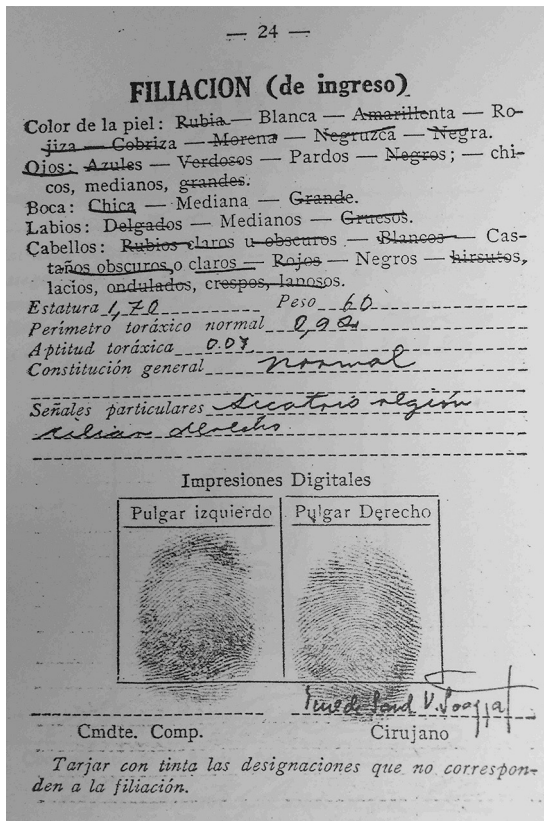 — 24 —
FILIACION (de ingreso)
Color de la piel: Rubia — Blanca — Amarillenta — Ro-
jiza — Cobriza — Morena — Negruzca — Negra.
Ojos: Azules — Verdosos — Pardos — Negros; — chi-
cos, medianos, grandes.
Boca: Chica — Mediana — Grande.
Labios: Delgados — Medianos — Gruesos.
Cabellos: Rubios claros u obscuros — Blancos — Cas-
taños obscuros o claros — Rojos — Negros — hirsutos,
lacios, ondulados, crespos, lanosos.
Estatura 1,70 Peso 60
Perímetro toráxico normal 0,92
Aptitud toráxica 0.07
Constitución general normal
Señales particulares región
derecho
Impresiones Digitales
Pulgar izquierdo Pulgar Derecho
Cmdte. Comp. Cirujano
Tarjar con tinta las designaciones que no correspon-
den a la filiación.